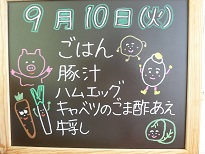 9月10日(火)
ごはん
豚汁
ハムエッグ
キャベツのごま酢あえ
牛乳